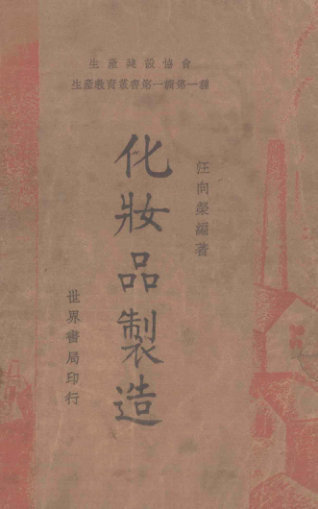 生產建設協會
生產教育叢書第一輯第一種
汪向榮編著
化妝品製造
世界書局印行